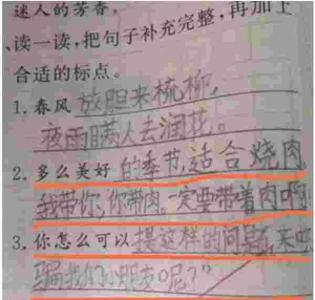 迷人的芳香。
、读一读,把句子补充完整,再加上
合适的标点。
1.春风放胆来梳柳,
夜雨瞒人去润花。
2.多么美好的季节,适合烧肉
我带你,你带肉。一定要带着肉啊!
3.你怎么可以提这样的问题,来
骗我们小朋友呢?"